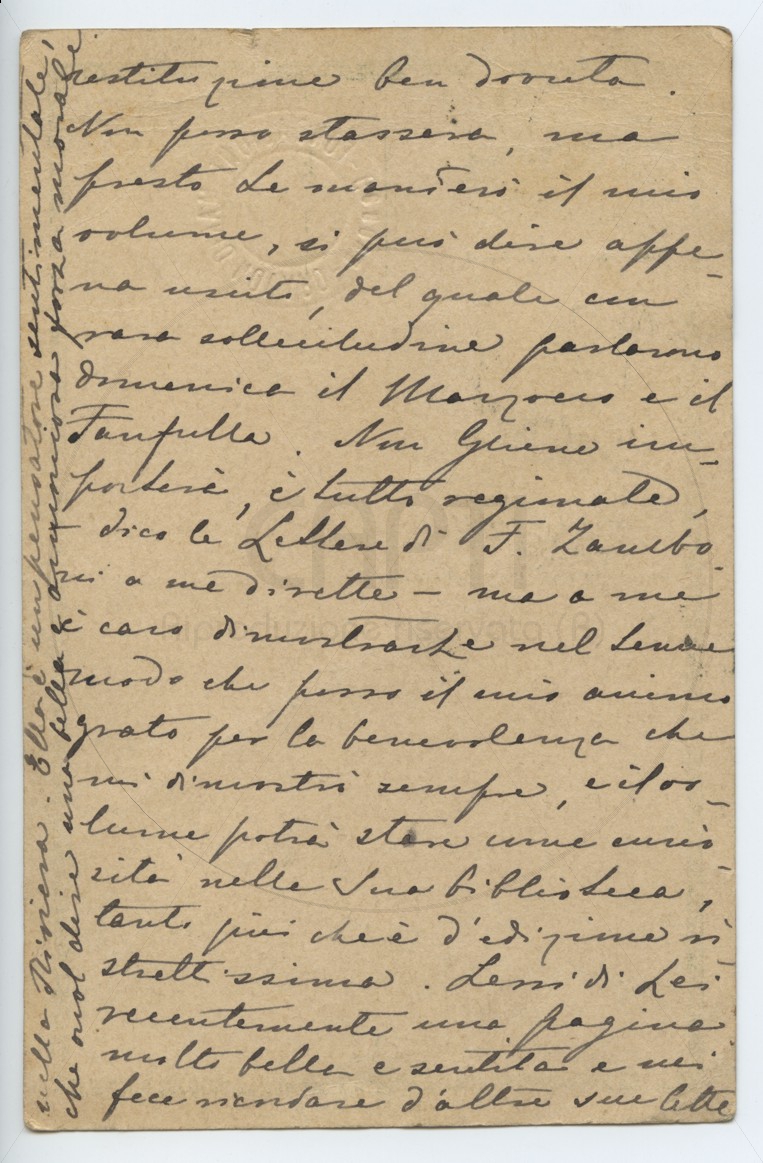 restituzione ben dovuta.
Non posso stassera, ma
presto Le manderò il mio
volume, si può dire appe-
na uscito, del quale con
rara sollecitudine parlarono
domenica il Marzocco e il
Fanfulla. Non Gliene im-
porterà, è tutto regionale,
dico le Lettere di F. Zambo-
ni a me dirette – ma a me
è caro dimostrarLe nel tenue
modo che posso il mio animo
grato per la benevolenza che
mi dimostrò sempre, e il vo-
lume potrà stare come curio-
sità nella Sua biblioteca,
tanto più che è d'edizione ri-
strettissima. Lessi di Lei
recentemente una pagina
molto bella e sentita e mi
fece ricordare d'altre sue lette
nella Riviera. Ella è un pensatore sentimentale,
che vuol dire una bella e armoniosa forza morale.
Riproduzione riservata (R)